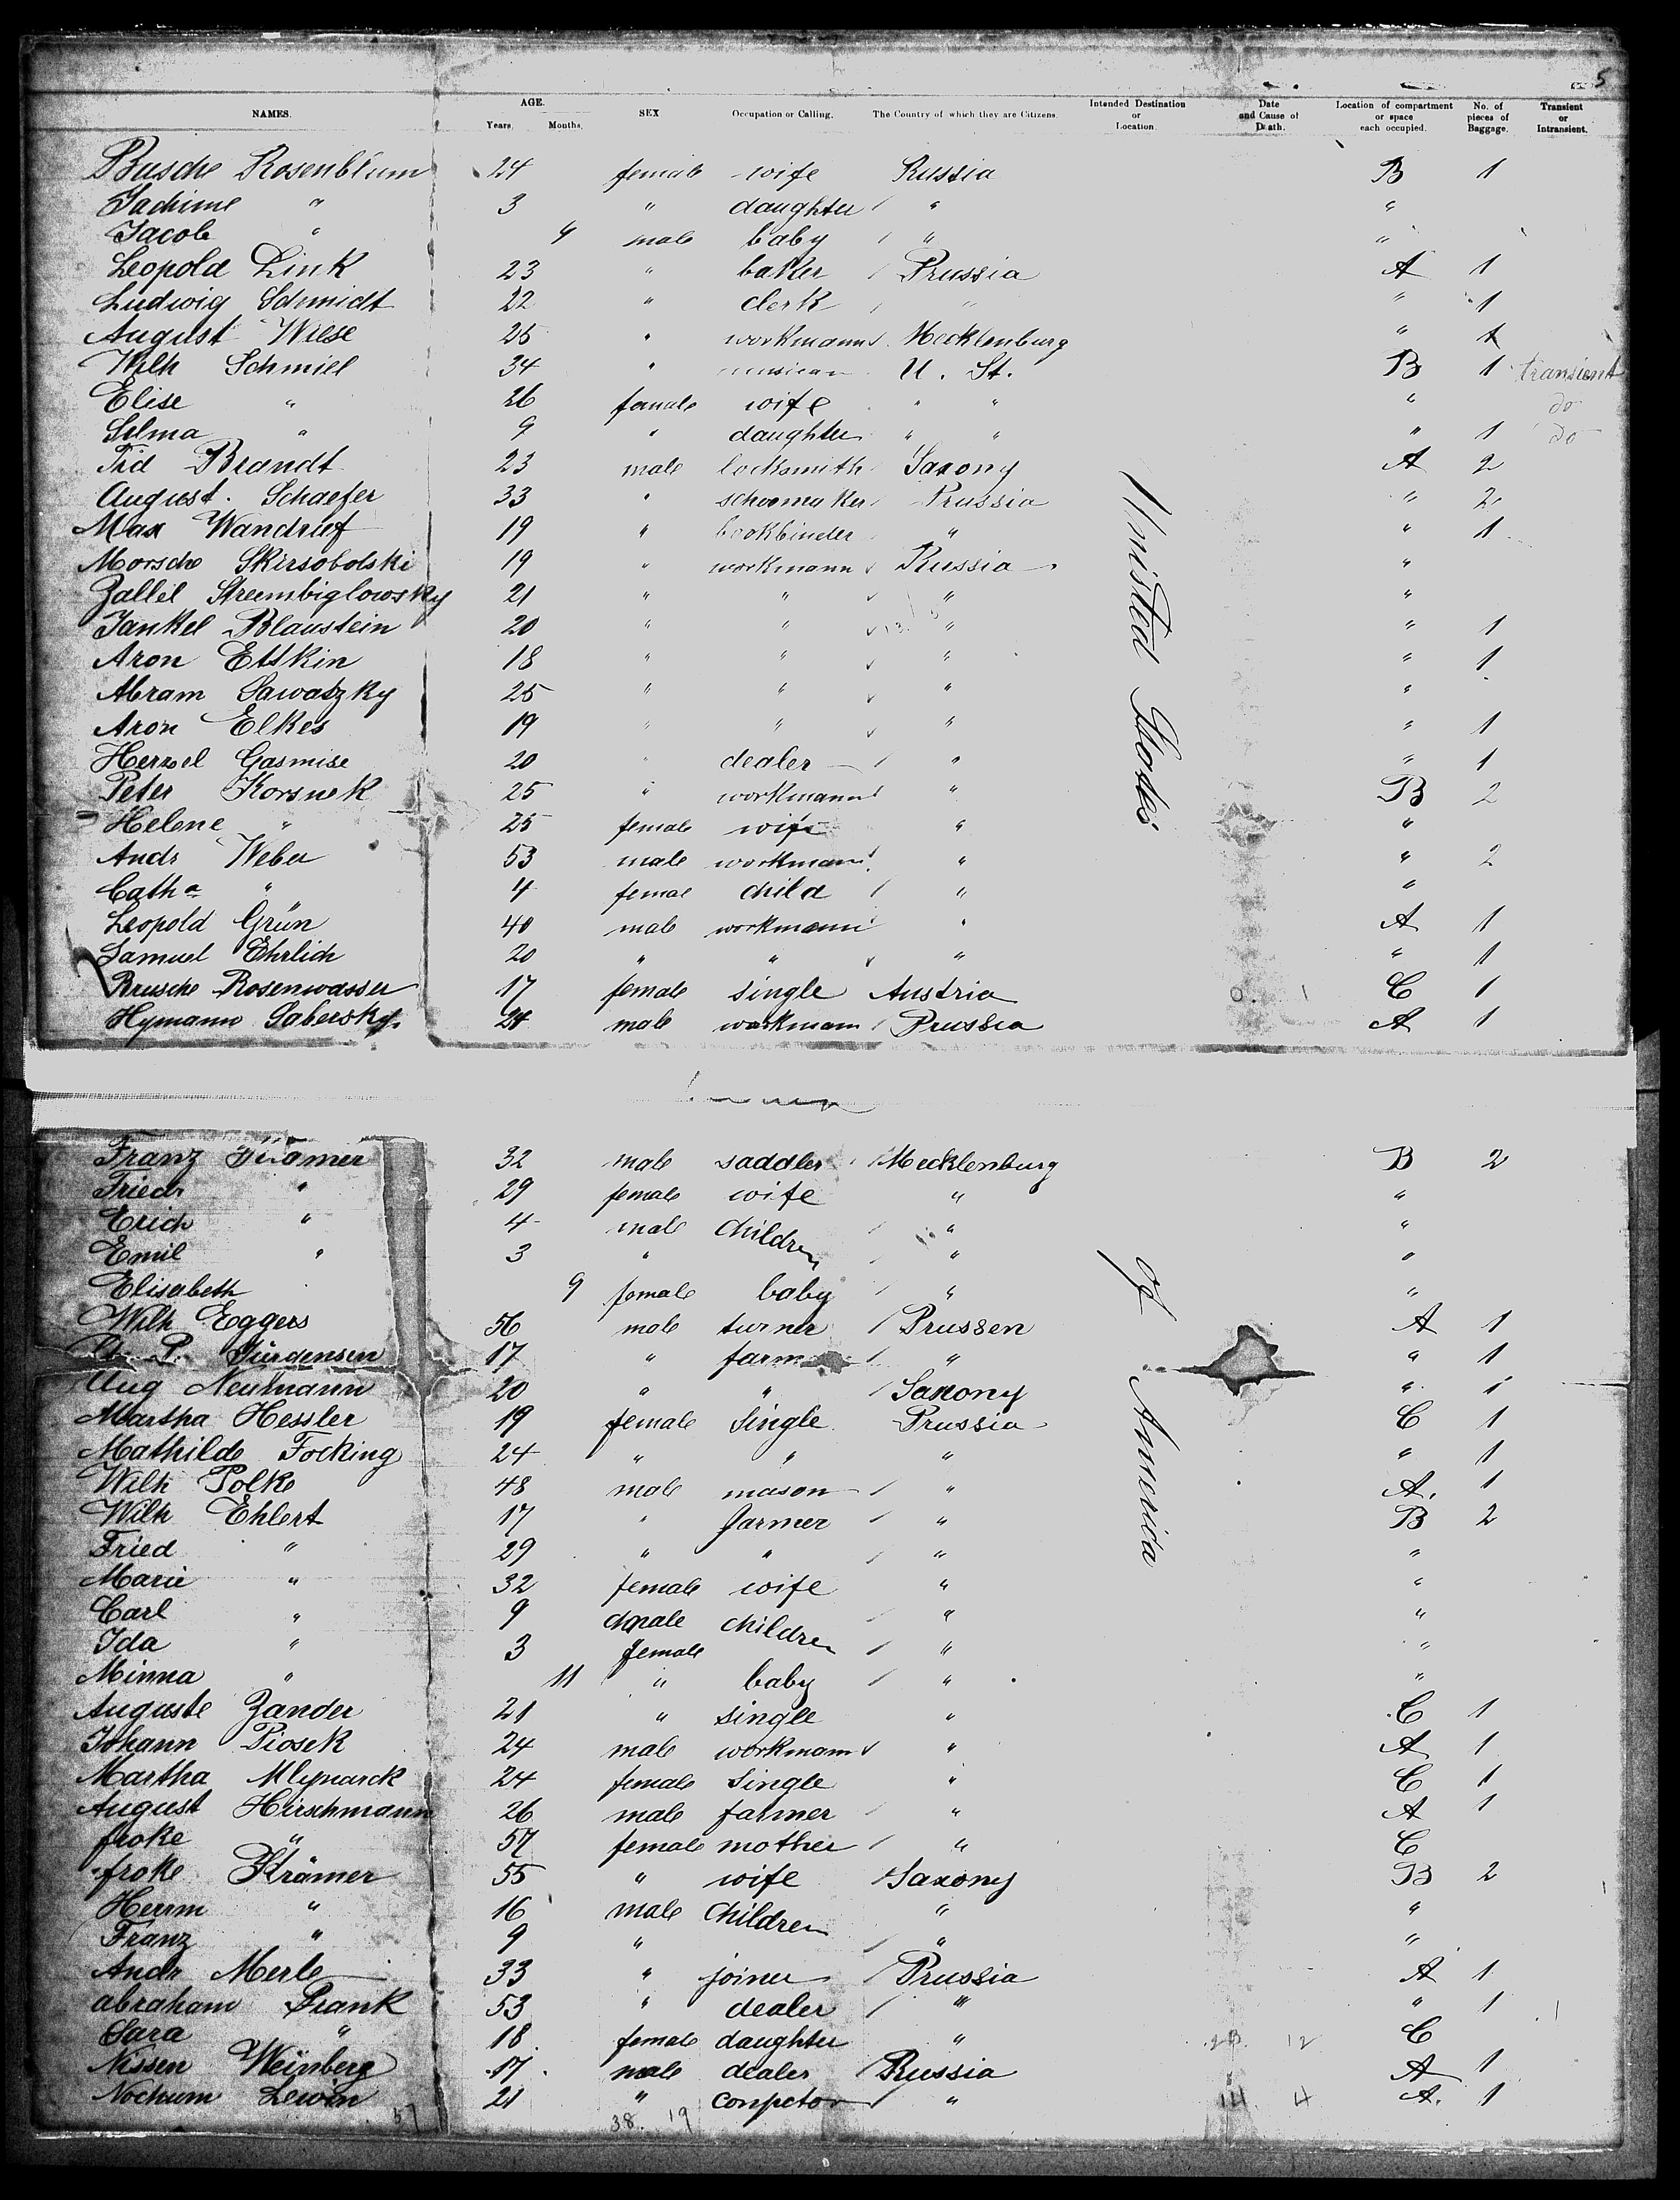 5
NAMES. AGE. Years. Months. SEX Occupation or Calling. The Country of which they are Citizens. Intended Destination or Location. Date and Cause of Death. Location of compartment or space each occupied. No. of pieces of Baggage. Transient or Intransient.
Busche Rosenblum 24 female wife Russia B 1
Jachime " 3 " daughter " "
Jacob " 9 male baby " "
Leopold Link 23 " baker Prussia A 1
Ludwig Schmidt 22 " clerk " " 1
August Wiese 25 " workmann Mecklenburg " 1
Wilh Schmiel 34 " musican U. St. B 1 transient
Elise " 26 female wife " " " do
Selma " 9 " daughter " " " 1 do
Frd Brandt 23 male locksmith Saxony A 2
August. Schaefer 33 " schoomaker Prussia " 2
Max Wandruf 19 " bookbinder " " 1
Morsche Skirsobolski 19 " workmann Russia "
Zallel Streimbiglowsky 21 " " " "
Jankel Blaustein 20 " " " " 1
Aron Ettkin 18 " " " " 1
Abram Sawatzky 25 " " " "
Aron Elkes 19 " " " " 1
Herzel Gasmise 20 " dealer " " 1
Peter Korsuek 25 " workmann " B 2
Helene " 25 female wife " "
Andr Weber 53 male workmann " " 2
Catha " 4 femal child " "
Leopold Grün 40 male workmann " A 1
Samuel Ehrlich 20 " " " " 1
Brusche Rosenwasser 17 female single Austria C 1
Hymann Sabersky 24 male workmann Prussia A 1
United States
Franz 32 male saddler Mecklenburg B 2
Friedr " 29 female wife " "
Erich " 4 male children " "
Emil " 3 " " "
Elisabeth 9 female baby " "
Wilh Eggers 56 male turner Prussen A 1
P. Jürgensen 17 " farm " " 1
Aug Neumann 20 " " Saxony " 1
Martha Hessler 19 female single Prussia C 1
Mathilde Focking 24 " " " " 1
Wilh Polke 48 male mason " A. 1
Wilh Ehlert 17 " farmer " B 2
Fried " 29 " " " "
Marie " 32 female wife " "
Carl " 9 male children " "
Ida " 3 female " "
Minna " 11 " baby " "
Auguste Zander 21 " single " C 1
Johann Piosek 24 male workmann " A 1
Martha Mlynarck 24 female single " C 1
August Hirschmann 26 male farmer " A 1
froke " 57 female mother " C
froke Krämer 55 " wife Saxony B 2
Herrm " 16 male children " "
Franz " 9 " " "
Andr Merle 33 " joiner Prussia A 1
abraham Frank 53 " dealer " " 1
Sara " 18 female daughter " C
Nissen Weinberg 17 male dealer Russia A 1
Nochum Lewin 21 " conpetor " A. 1
of America
57 38. 19 14 4